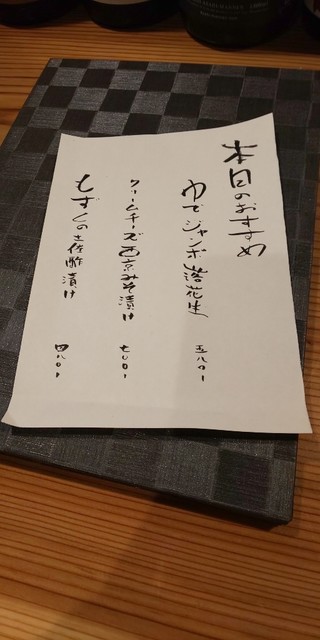 本日のおすすめ
ゆでジャンボ落花生 五八〇-
クリームチーズ西京みそ漬け 七〇〇-
もずくの土佐酢漬け 四八〇-